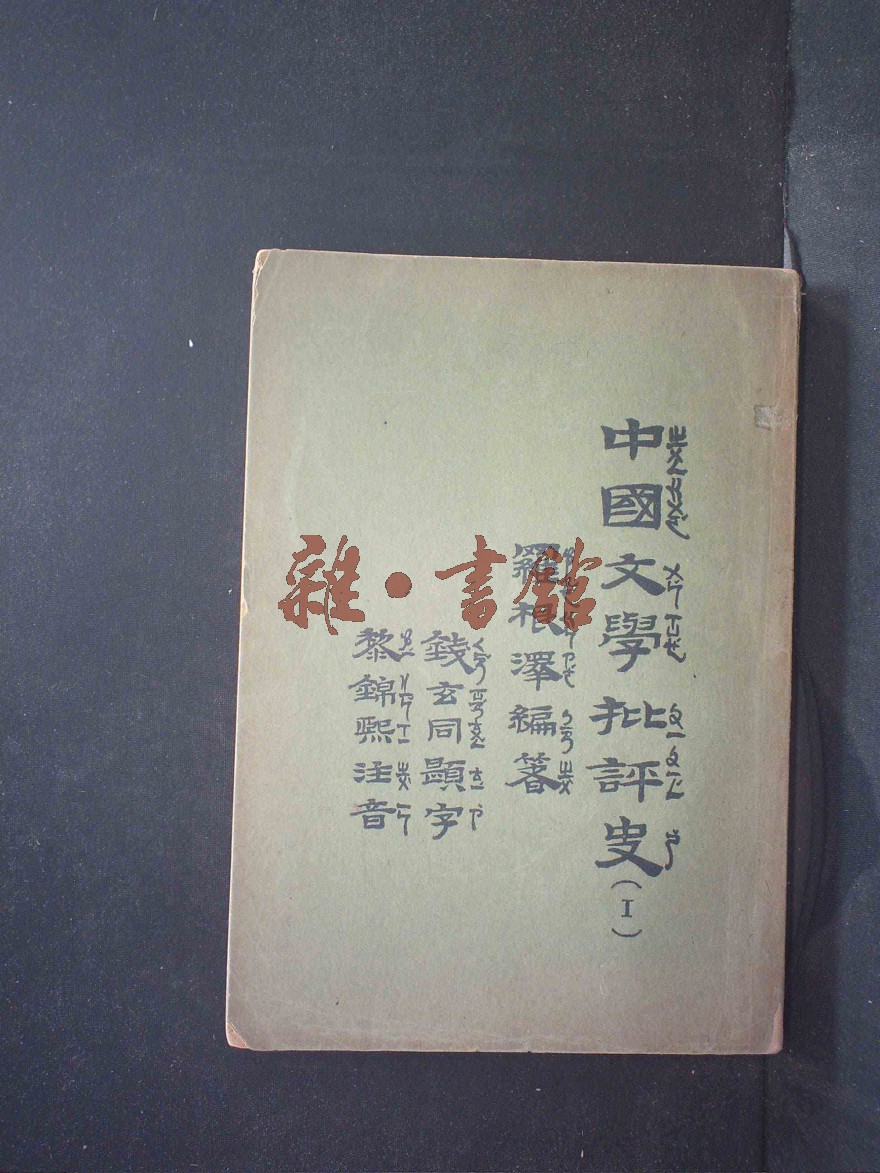 中國文學批評史(I)
羅根澤編箸
錢玄同題字
黎錦熙注音
雜·書館